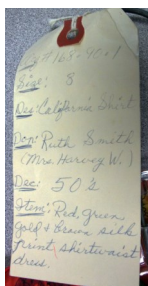 Size: 8
Des: California Shirt
Don: Ruth Smith
(Mrs. Harvey W.)
Dec: 50's
Item: Red, green
gold & Brown silk
print shirtwaist
dress.